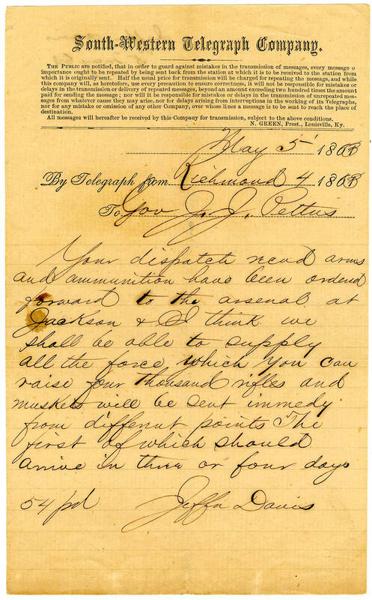 South-Western Telegraph Company.
THE PUBLIC are notified, that in order to guard against mistakes in the transmission of messages, every message of
importance ought to be repeated by being sent back from the station at which it is to be received to the station from
which it is originally sent. Half the usual price for transmission will be charged for repeating the message, and while
this company will, as heretofore, use every precaution to ensure correctness, it will not be responsible for mistakes or
delays in the transmission or delivery of repeated messages, beyond an amount exceeding two hundred times the amount
paid for sending the message; nor will it be responsible for mistakes or delays in the transmission of unrepeated mes-
sages from whatever cause they may arise, nor for delays arising from interruptions in the working of its Telegraphs,
nor for any mistake or omission of any other Company, over whose lines a message is to be sent to reach the place of
destination.
All messages will hereafter be received by this Company for transmission, subject to the above conditions.
N. GREEN, Prest., Louisville, Ky.
May 5 1863
By Telegraph from Richmond 4 1863
To Gov J. J. Pettus
Your dispatch recd arms
and ammunition have been ordered
forward to the arsenal at
Jackson & I think we
shall be able to supply
all the force which you can
raise four thousand rifles and
muskets will be sent immedy
from different points The
first of which should
arrive in three or four days
54 pd Jeffn Davis